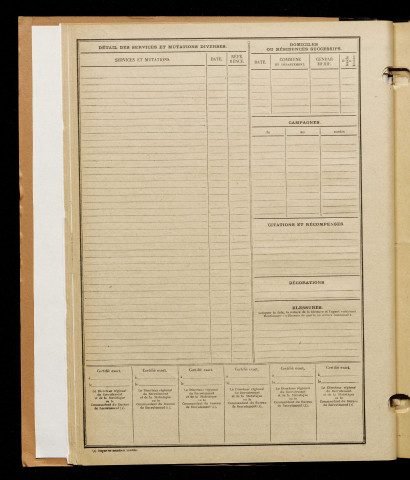 DÉTAIL DES SERVICES ET MUTATIONS DIVERSES
SERVICES ET MUTATIONS.
DATE.
RÉFÉ-
RENCE.
DOMICILES
OU RÉSIDENCES SUCCESSIFS.
DATE.
COMMUNE
ET DÉPARTEMENT.
GENDAR-
MERIE.
CAMPAGNES.
du
au
CITATIONS ET RÉCOMPENSES
DÉCORATIONS.
BLESSURES.
Certifié exact,
Certifié exact,
Certifié exact,
Certifié exact,
Certifié exact,
Certifié exact,
A
A
A
A
A
A
Le Directeur régional
du Recrutement
et de la Statistique
ou le
Commandant du Bureau
de Recrutement (1).
Le Directeur régional
du Recrutement
et de la Statistique
ou le
Commandant du Bureau
de Recrutement (1).
Le Directeur régional
du Recrutement
et de la Statistique
ou le
Commandant du Bureau
de Recrutement (1).
Le Directeur régional
du Recrutement
et de la Statistique
ou le
Commandant du Bureau
de Recrutement (1).
Le Directeur régional
du Recrutement
et de la Statistique
ou le
Commandant du Bureau
de Recrutement (1).
Le Directeur régional
du Recrutement
et de la Statistique
ou le
Commandant du Bureau
de Recrutement (1).
(1) Rayer la mention inutile.